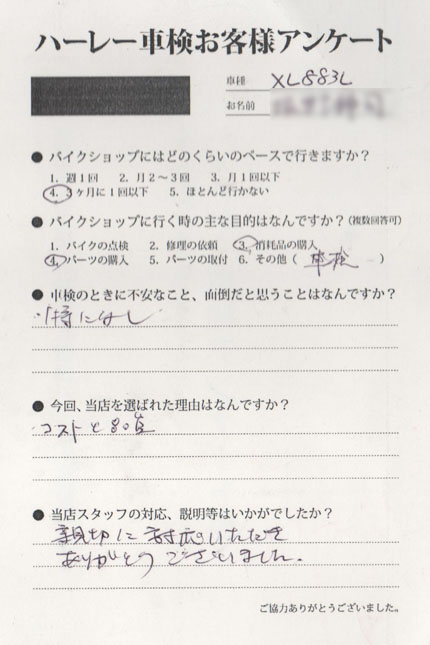 ハーレー車検お客様アンケート
車種 XL883L
お名前
● バイクショップにはどのくらいのペースで行きますか？
1. 週1回 2. 月2～3回 3. 月1回以下
4. 3ヶ月に1回以下 5. ほとんど行かない
● バイクショップに行く時の主な目的はなんですか？(複数回答可)
1. バイクの点検 2. 修理の依頼 3. 消耗品の購入
4. パーツの購入 5. パーツの取付 6. その他( 車検 )
● 車検のときに不安なこと、面倒だと思うことはなんですか？
特になし
● 今回、当店を選ばれた理由はなんですか？
コストと
● 当店スタッフの対応、説明等はいかがでしたか？
親切に対応いただき
ありがとうございました。
ご協力ありがとうございました。